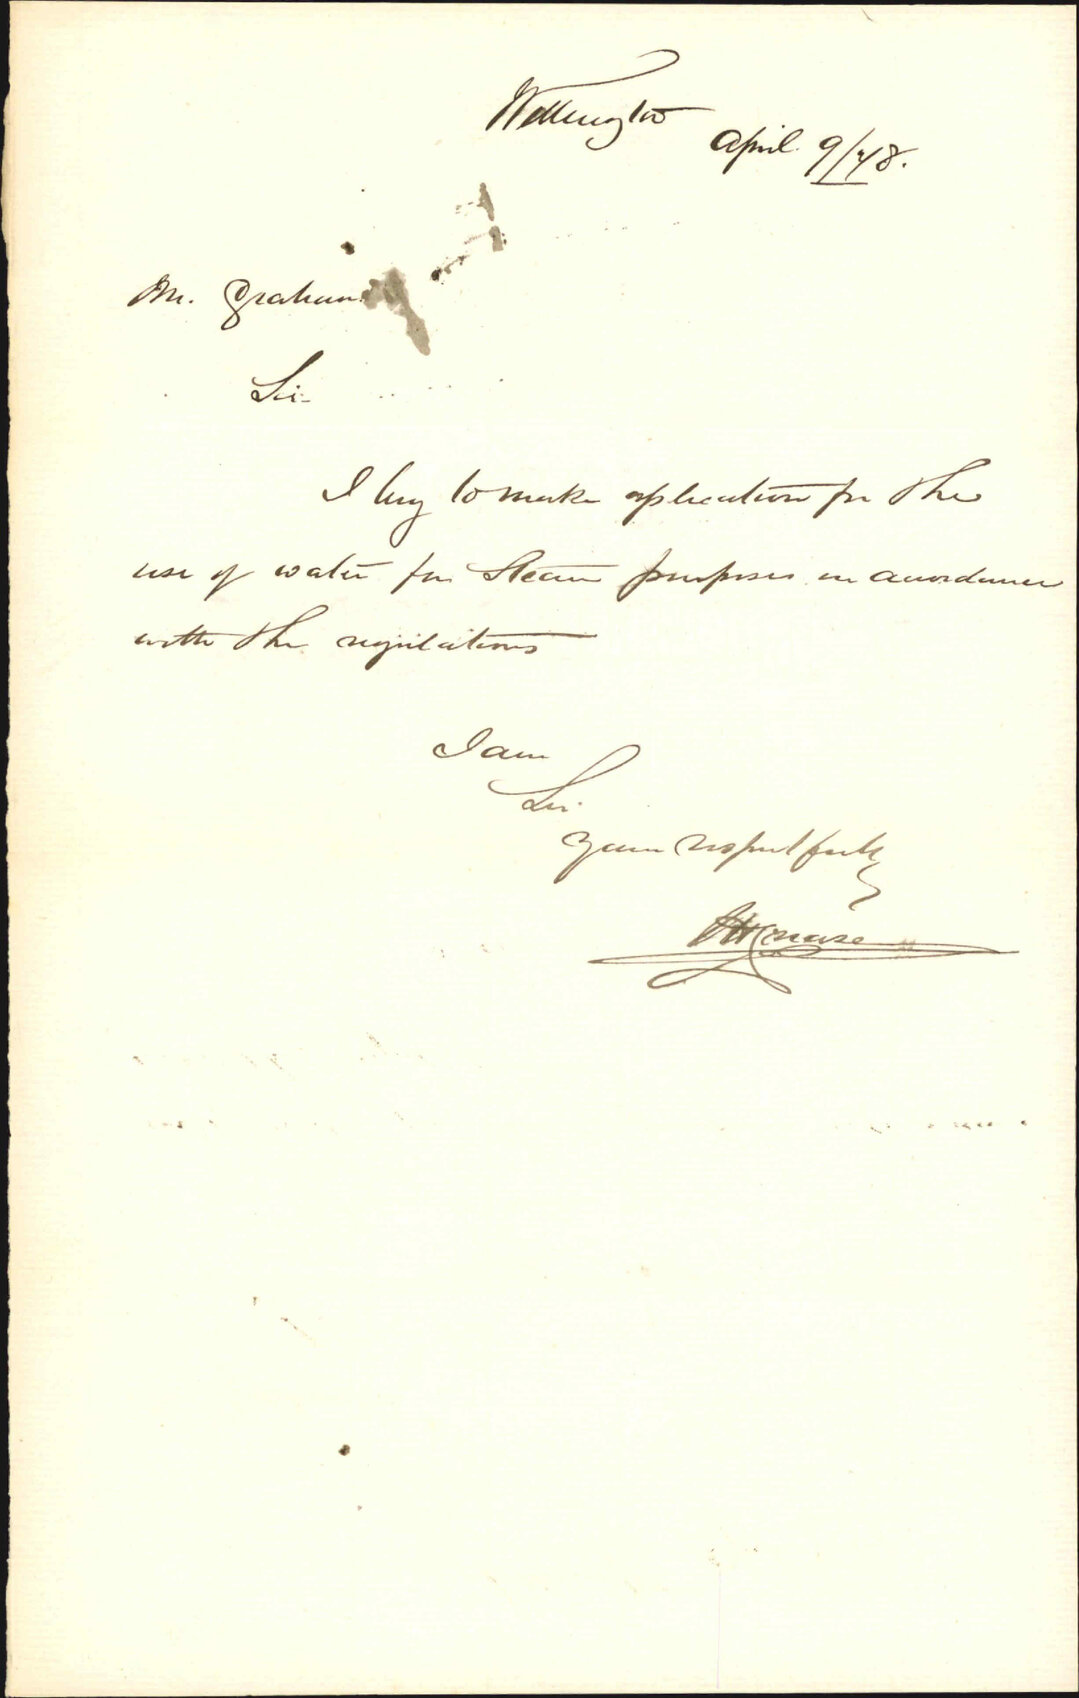 Wellington
April 9/78.
Mr. Graham
Sir
I beg to make aplication for the
use of water for Steam purposes in accordance
with the regulations
I am
Sir
Yours respectfully